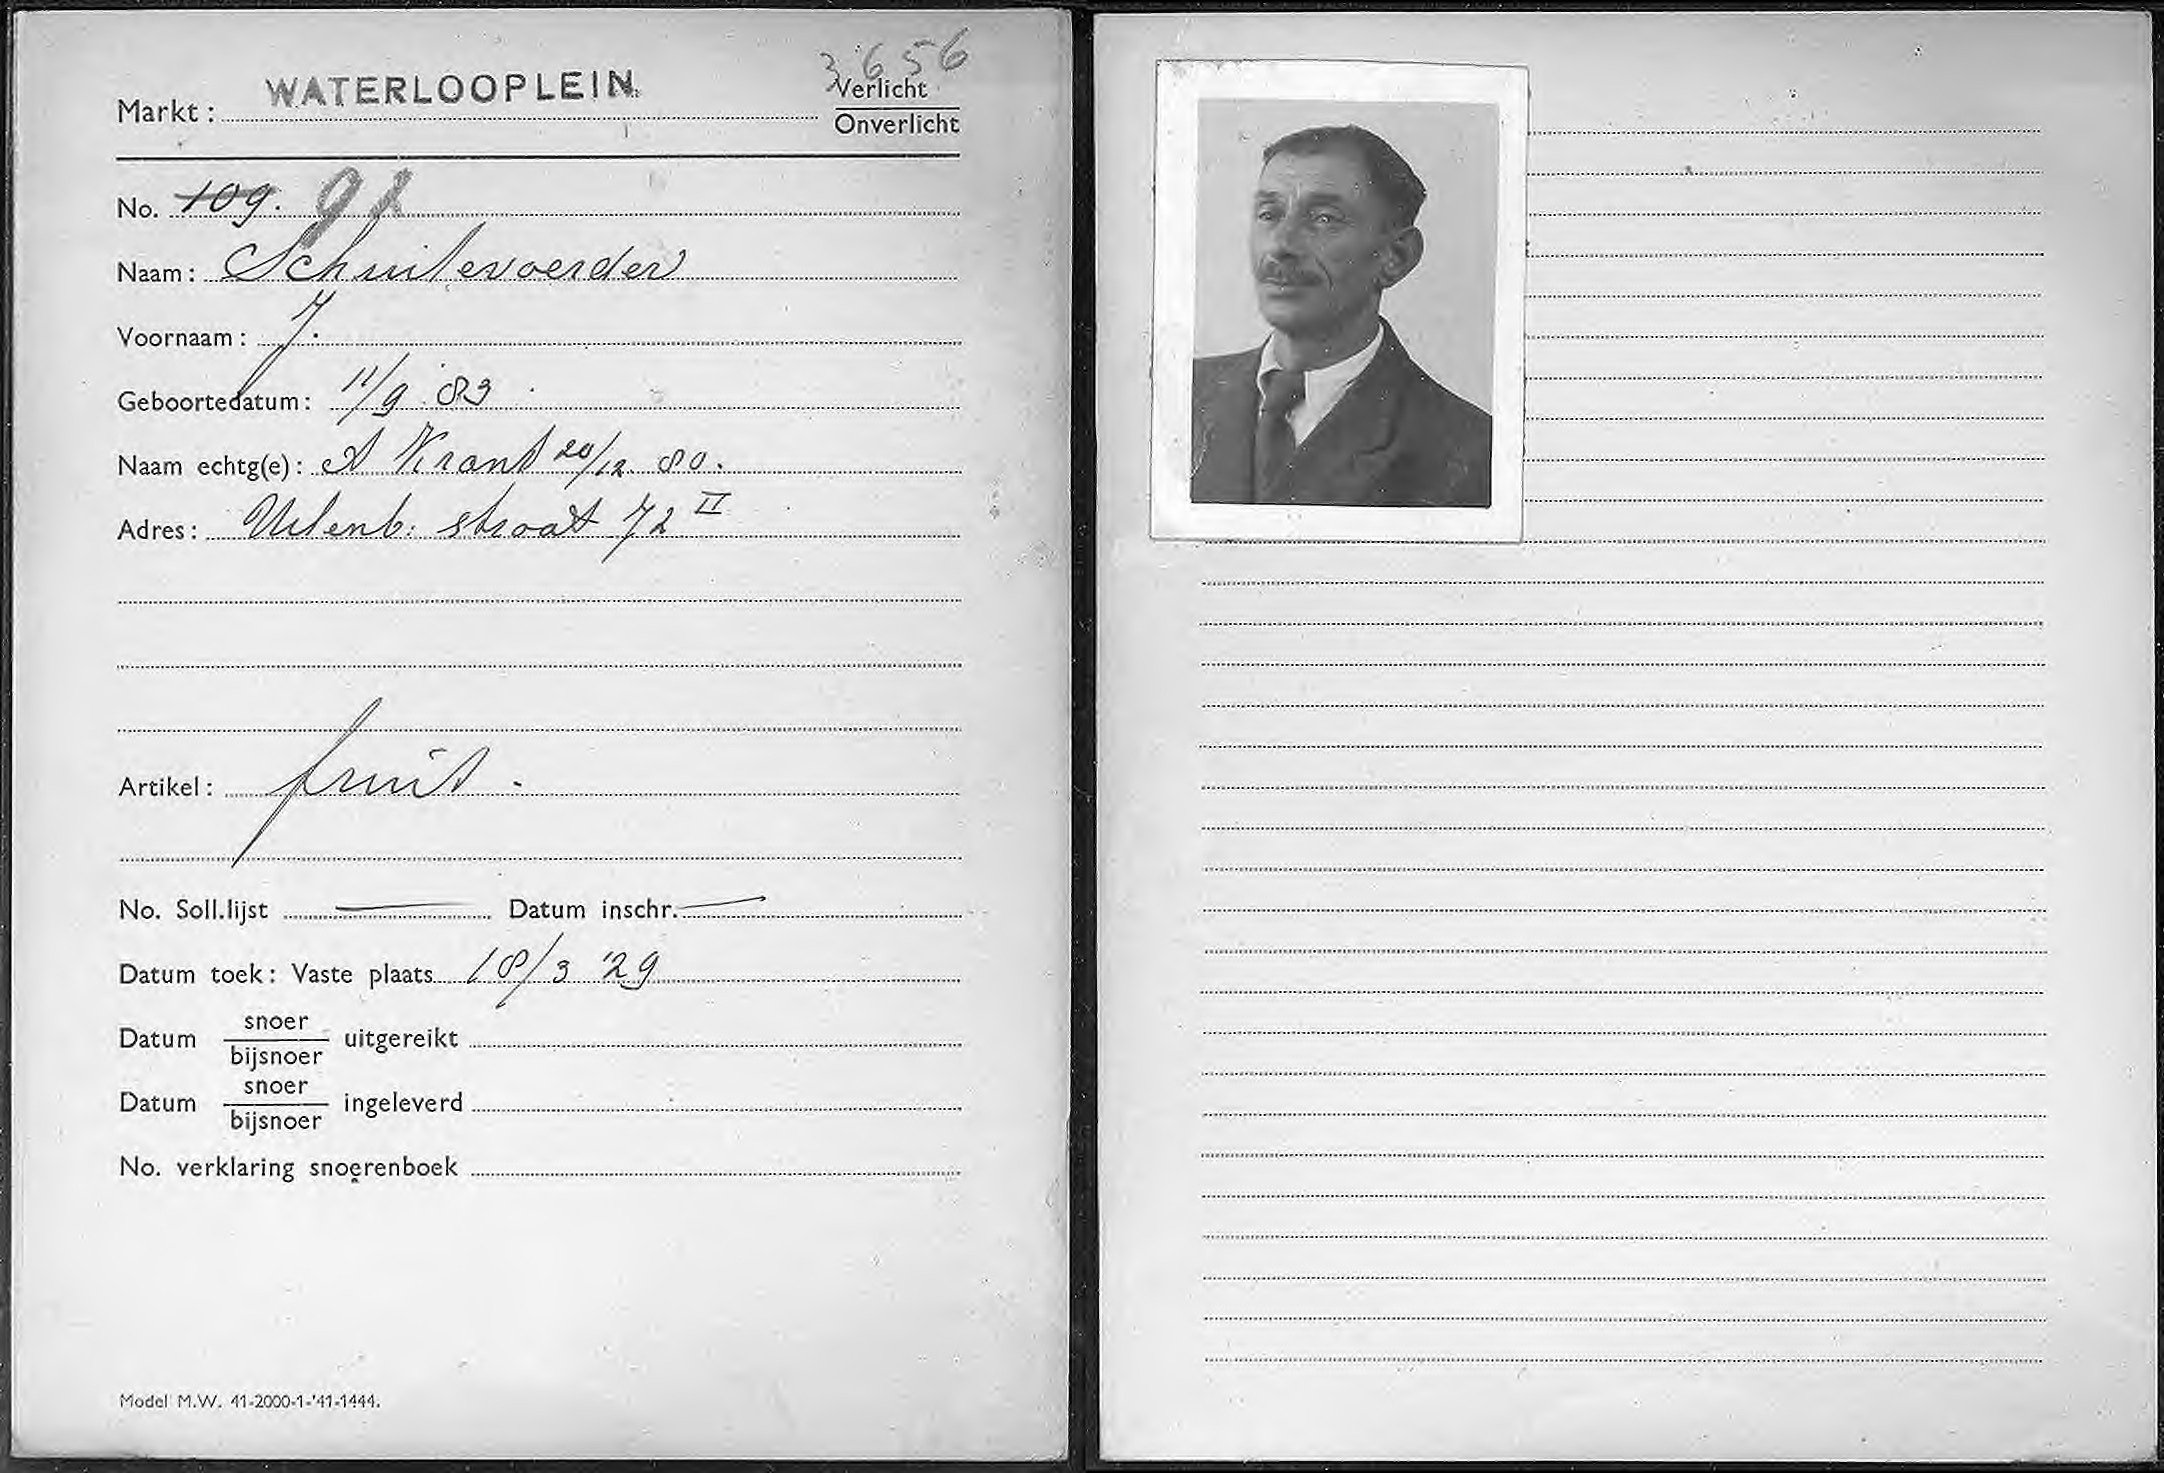 3656
Markt: WATERLOOPLEIN. Verlicht
Onverlicht
No. 109. 92
Naam: Schuitevoerder
Voornaam: J.
Geboortedatum: 11/9 '83
Naam echtg(e): A Krant 20/12 80.
Adres: Uilenb: straat 72 II
Artikel: fruit -
No. Soll.lijst — Datum inschr. —
Datum toek: Vaste plaats 18/3 '29
Datum snoer/bijsnoer uitgereikt
Datum snoer/bijsnoer ingeleverd
No. verklaring snoerenboek
Model M.W. 41-2000-1-'41-1444.